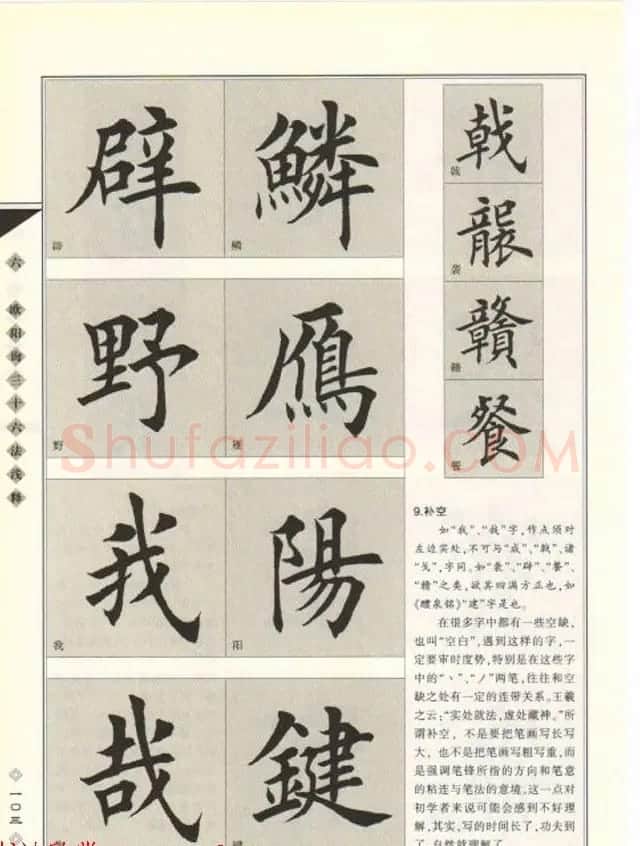 六 欧阳询三十六法浅释
一〇三
辟 鱗
鳞
野 鴈
野
我 陽
我 阳
哉 鍵
戟
戟
襲
袭
贛
赣
餐
餐
Shufaziliao.COM
9.补空
如“我”、“哉”字,作点须对
左边实处,不可与“成”、“戟”,诸
“戈”,字同。如“袭”、“辟”、“餐”、
“赣”之类,欲其四满方正也,如
《醴泉铭》“建”字是也。
在很多字中都有一些空缺,
也叫“空白”,遇到这样的字,一
定要审时度势,特别是在这些字
中的“丶”、“丿”两笔,往往和空
缺之处有一定的连带关系。王羲
之云:“实处就法,虚处藏神。”所
谓补空,不是要把笔画写长写
大,也不是把笔画写粗写重,而
是强调笔锋所指的方向和笔意
的粘连与笔法的意境,这一点对
初学者来说可能会感到不好理
解,其实,写的时间长了,功夫到
了,自然就理解了